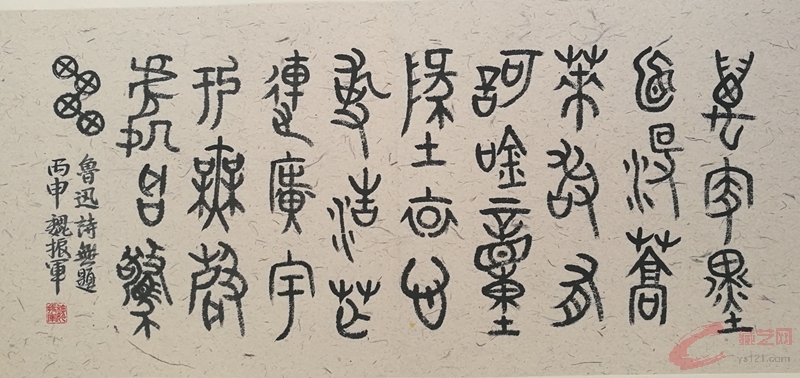 萬家墨
面沒蒿
萊敢有
歌吟動
地哀心
事浩茫
連廣宇
於無聲
處聽驚
雷
魯迅詩無題
丙申 魏振軍
ys121.com